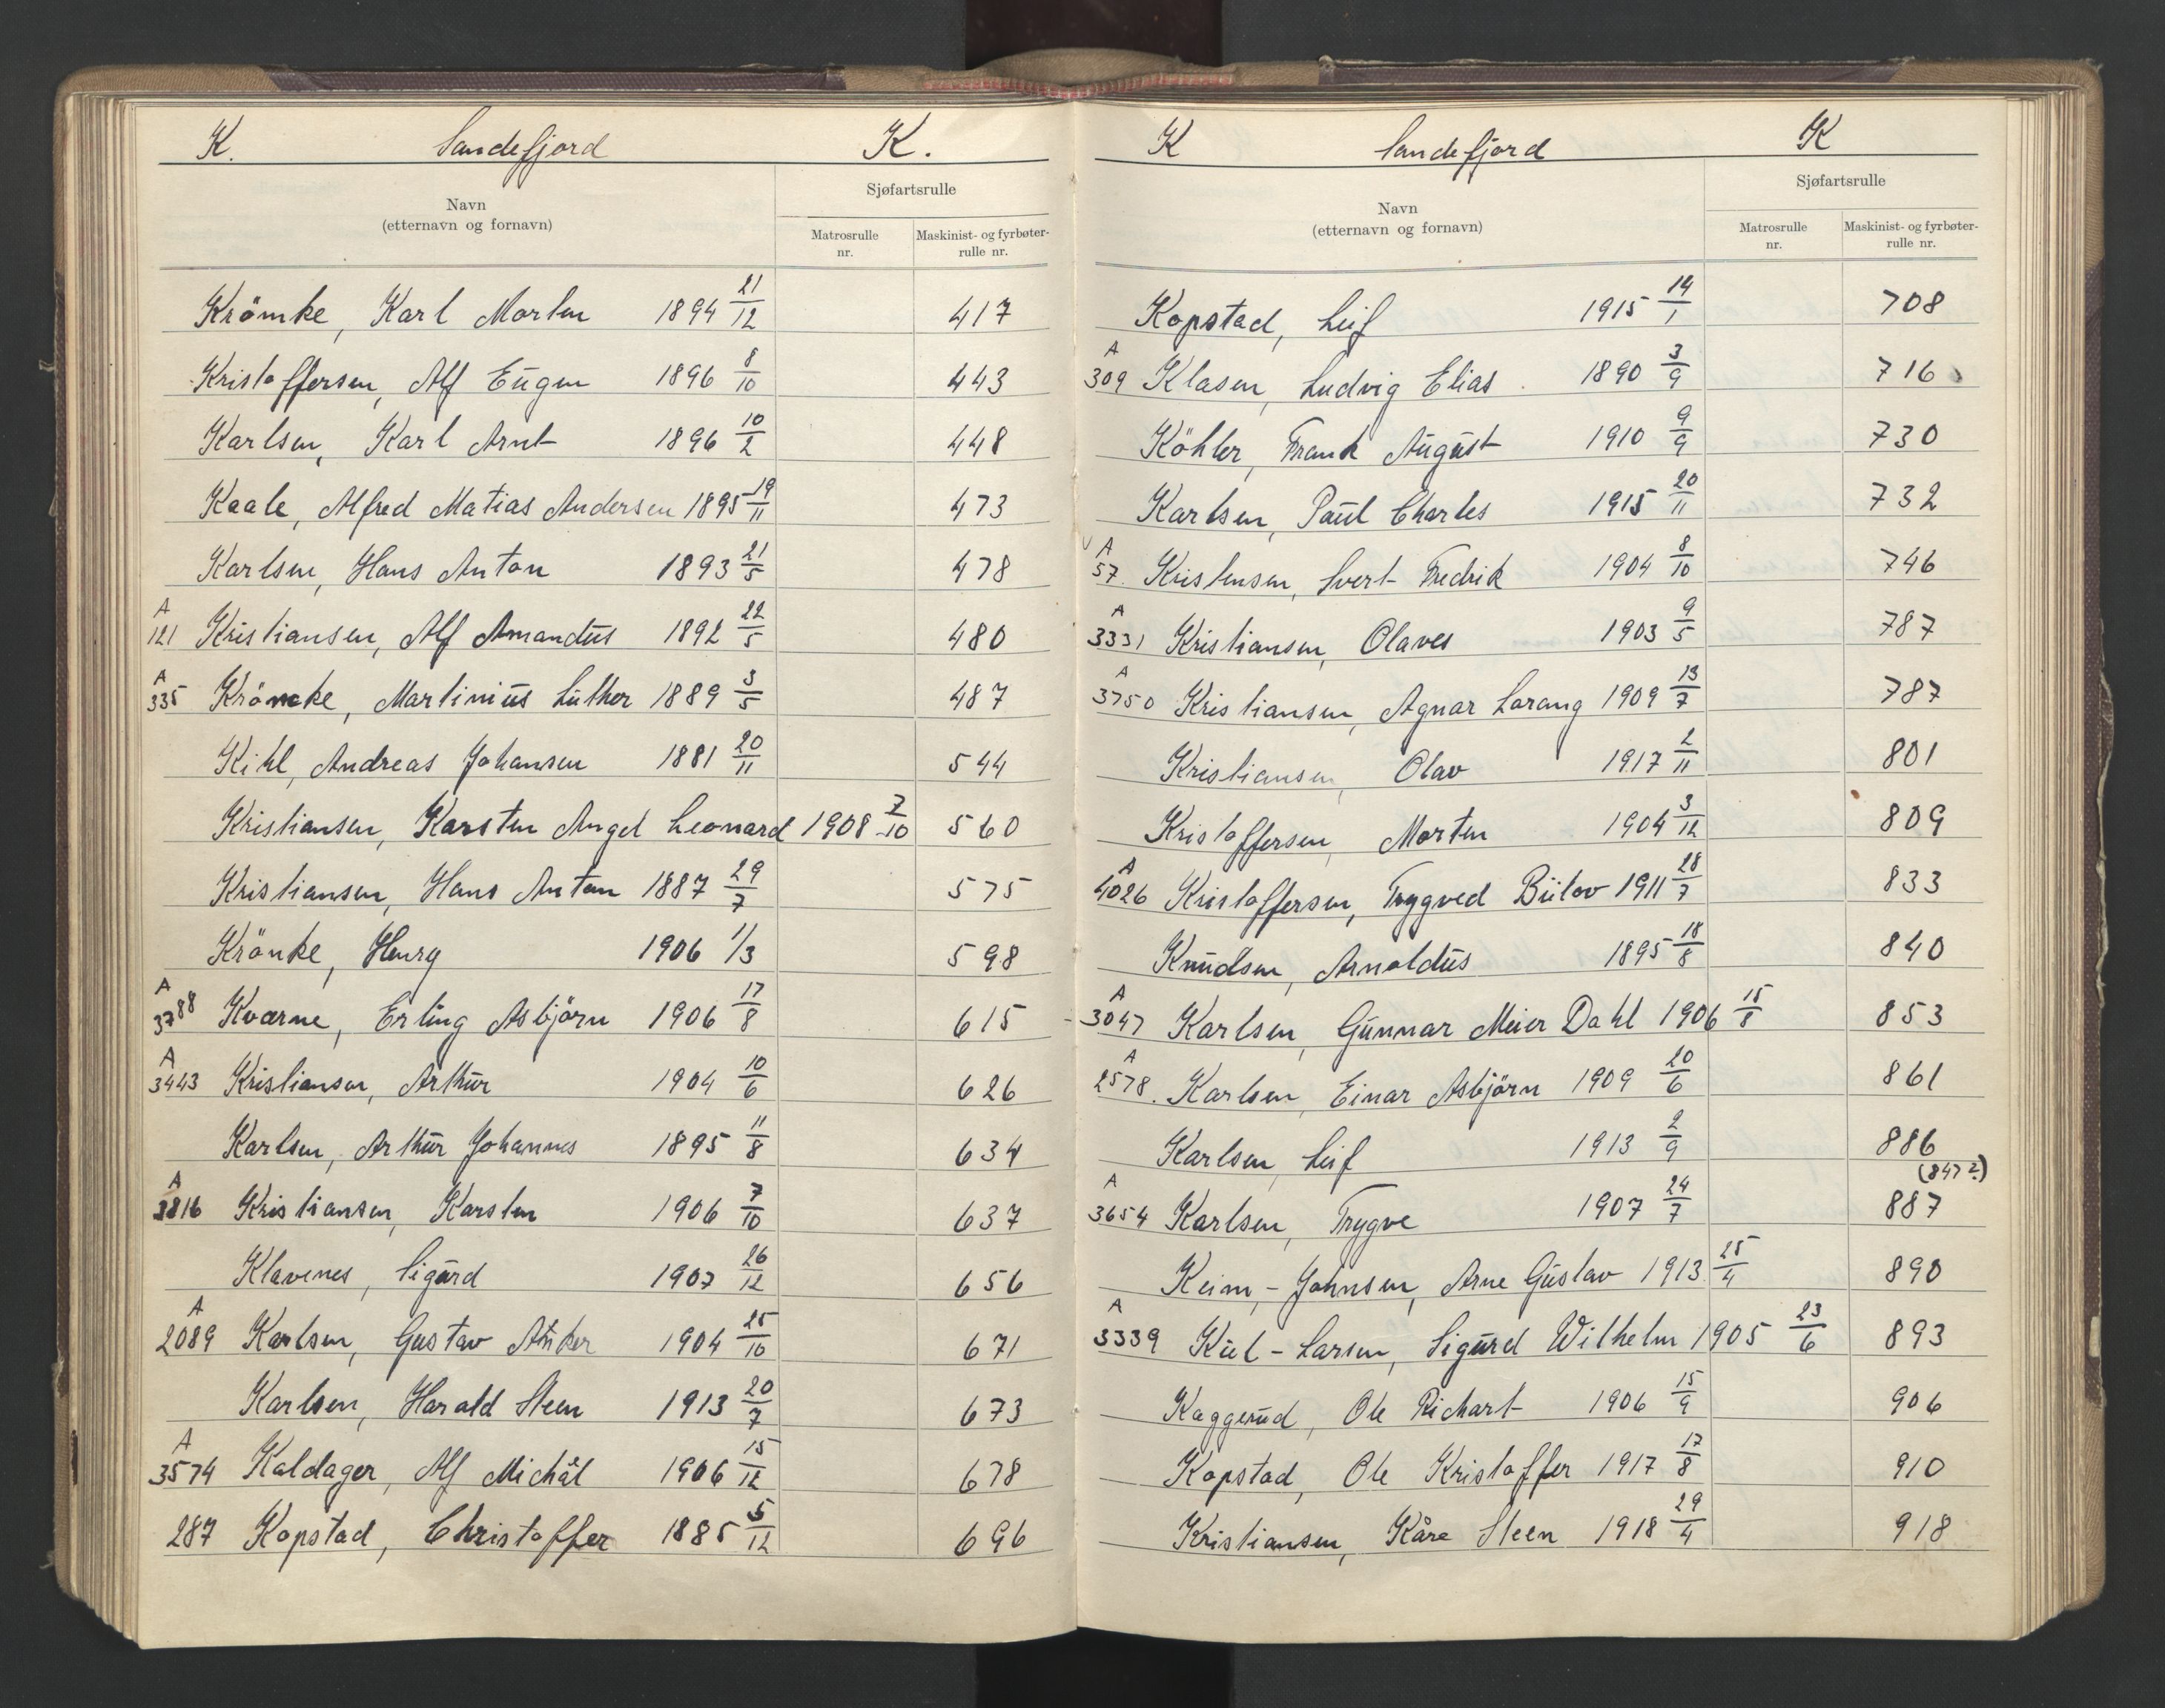 K. Sandefjord K.
Navn
(etternavn og fornavn)
Sjøfartsrulle
Matrosrulle nr.
Maskinist- og fyrbøter-rulle nr.
Krömke, Karl Morten 1894 21/12 417
Kristoffersen, Alf Eugen 1896 8/10 443
Karlsen, Karl Arnt 1896 10/2 448
Kaale, Alfred Matias Andersen 1895 19/11 473
Karlsen, Hans Anton 1893 21/5 478
A 121 Kristiansen, Alf Amandus 1892 22/5 480
A 335 Krömcke, Martinius Luther 1889 3/5 487
Kihl, Andreas Johansen 1881 20/11 544
Kristiansen, Karsten Angel Leonard 1908 7/10 560
Kristiansen, Hans Anton 1887 29/7 575
Krönke, Henry 1906 1/3 598
A 3788 Kværne, Erling Asbjörn 1906 17/8 615
A 3443 Kristiansen, Arthur 1904 10/6 626
Karlsen, Arthur Johannes 1895 11/8 634
A 3816 Kristiansen, Karsten 1906 7/10 637
Klavenes, Sigurd 1907 26/12 656
A 2089 Karlsen, Gustav Anker 1904 25/10 671
Karlsen, Harald Steen 1913 20/7 673
A 3574 Kaldager, Alf Michäl 1906 15/12 678
287 Kopstad, Christoffer 1885 5/12 696
K Sandefjord K
Navn
(etternavn og fornavn)
Sjøfartsrulle
Matrosrulle nr.
Maskinist- og fyrbøter-rulle nr.
Kopstad, Leif 1915 14/1 708
A 309 Klasen, Ludvig Elias 1890 3/9 716
Köhler, Frank August 1910 9/9 730
Karlsen, Paul Charles 1915 20/11 732
A 57. Kristensen, Svert Fredrik 1904 8/10 746
A 3331 Kristiansen, Olaves 1903 9/5 787
A 3750 Kristiansen, Agnar Larang 1909 13/7 787
Kristiansen, Olav 1917 2/11 801
Kristoffersen, Morten 1904 3/12 809
A 4026 Kristoffersen, Trygved Bülov 1911 28/7 833
Knudsen, Arnoldus 1895 18/8 840
A 3047 Karlsen, Gunnar Meier Dahl 1906 15/8 853
A 2578. Karlsen, Einar Asbjörn 1909 20/6 861
Karlsen, Leif 1913 2/9 886
(847?)
A 3654 Karlsen, Trygve 1907 24/7 887
Keim-Johnsen, Arne Gustav 1913 25/4 890
A 3339 Kiel-Larsen, Sigurd Wilhelm 1905 23/6 893
Kaggerud, Ole Richart 1906 15/9 906
Kopstad, Ole Kristoffer 1917 17/8 910
Kristiansen, Kåre Steen 1918 29/4 918